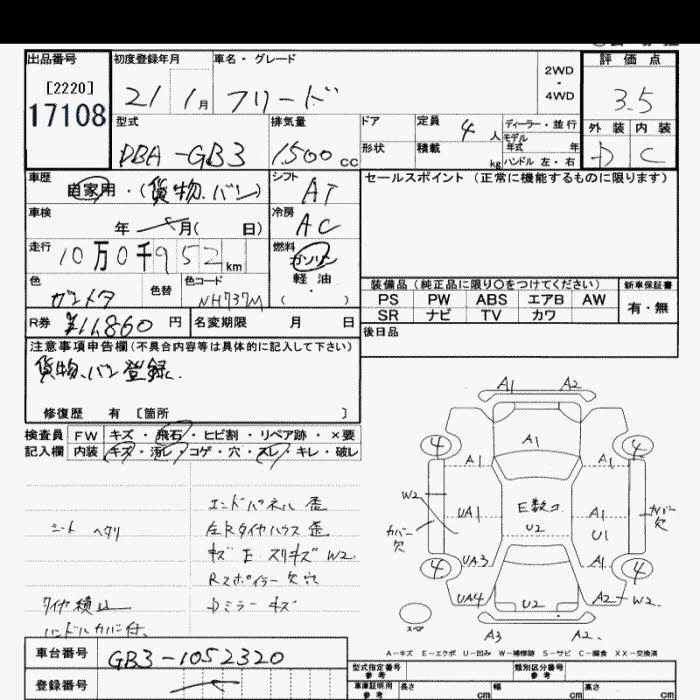 出品番号 初度登録年月 車名・グレード 評価点
[2220]
17108
21 1月 フリード
2WD
・
4WD
3.5
型式 排気量 ドア 定員 4人 ディーラー・並行
モデル
年式 年
外装 内装
DBA-GB3 1500cc 形状 積載 kg ハンドル 左・右 D C
車歴 自家用・(貨物.バン) シフト AT
セールスポイント (正常に機能するものに限ります)
車検 年 月( 日) 冷房 AC
走行 10万0千952km 燃料 ガソリン
軽油
・
( )
色 ガンメタ 色替 色コード NH737M
装備品 (純正品に限り〇をつけてください) 新車保証書
PS PW ABS エアB AW 有・無
SR ナビ TV カワ
R券 ¥11,860円 名変期限 月 日
後日品
注意事項申告欄(不具合内容等は具体的に記入して下さい)
貨物.バン登録.
修復歴 有 [箇所 ]
検査員 FW キズ・飛石・ヒビ割・リペア跡・×要
記入欄 内装 キズ・汚レ・コゲ・穴・スレ・キレ・破レ
エンドパネル 歪
シート ヘタリ
左Rタイヤハウス 歪
キズ E スリキズ W2.
Rスポイラー 欠穴
タイヤ積込
Dミラー キズ
ハンドルカバー付.
A1 A2
4 A1 4
A1 A1
W2
UA1 E数コ A1
カバー欠 U2 U1 カバー欠
UA3 A1
4 4
UA4 U2 A2 W2.
スペ
A3 A2.
A-キズ E-エクボ U-凹み W-補修跡 S-サビ C-腐食 XX-交換済
車台番号 GB3-1052320
型式指定番号
参考
類別区分番号
参考
登録番号
車庫証明用
参考
長さ cm 幅 cm 高さ cm